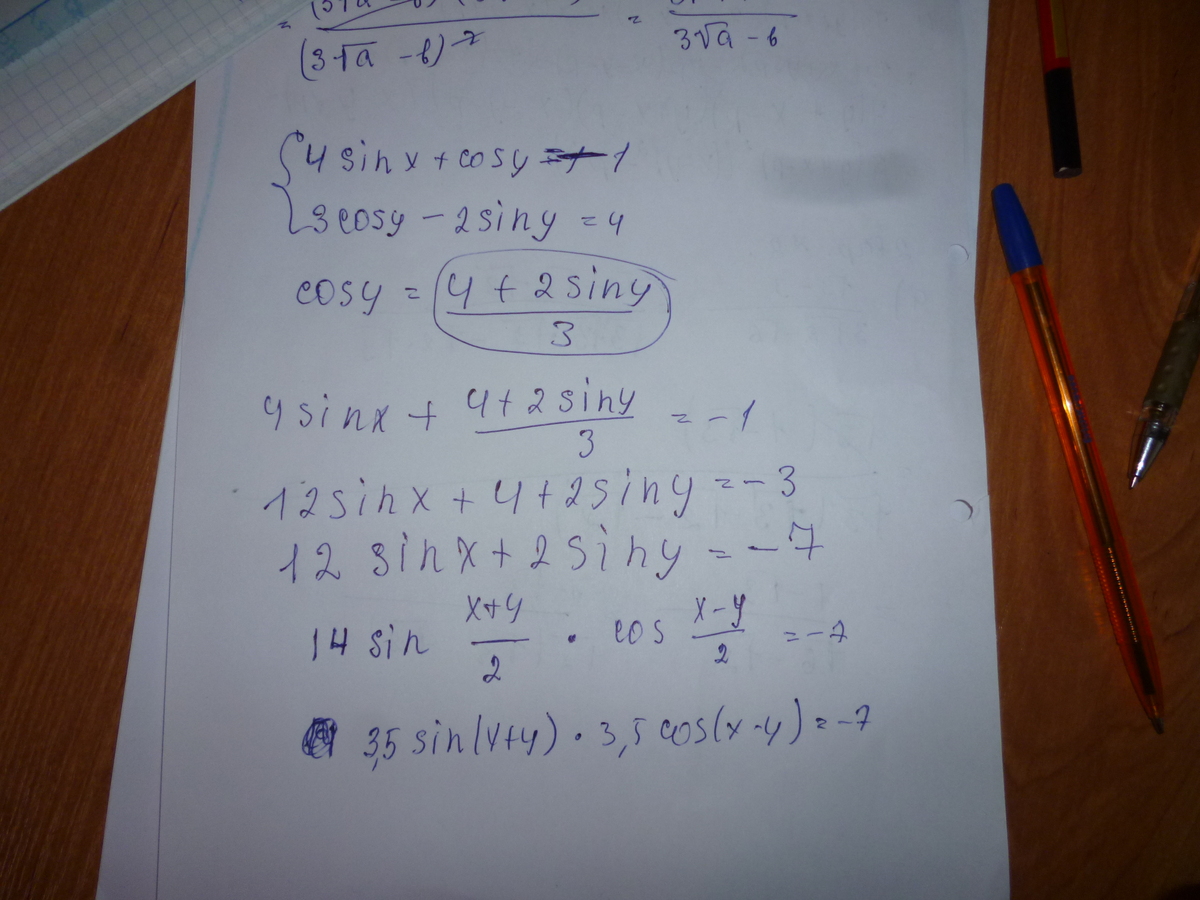 (3√a - b)² = 3√a - b
{ 4 sin x + cos y = -1
3 cos y - 2 sin y = 4
cos y = (4 + 2 sin y)/3
4 sin x + (4 + 2 sin y)/3 = -1
12 sin x + 4 + 2 sin y = -3
12 sin x + 2 sin y = -7
14 sin (x+y)/2 · cos (x-y)/2 = -7
3,5 sin(x+y) · 3,5 cos(x-y) = -7